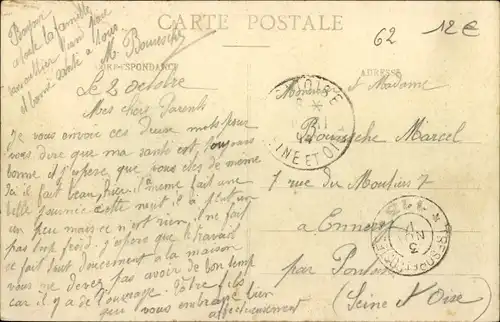 CARTE POSTALE
62
12€
CORRESPONDANCE
ADRESSE
Bonjour
a toute la famille
et bonne santé a tous
M. Boussche
Le 2 octobre
Mes chers Parents
Je vous envoie ces deux mots pour
vous dire que ma santé est toujours
bonne et j'espère que vous etes de meme
Ici il fait beau, hier il meme fait une
belle journée cette nuit il a plut un
peu mais ce n'est rien, il ne fait
pas trop froid. j'espère que le travail
se fait tout doucement a la maison
vous ne devez pas avoir de bon temp
car il y a de l'ouvrage. Votre fils
qui vous embrasse bien
affectueusement
Monsieur et Madame
Boussche Marcel
1 rue du Moutiers 7
a Ennery
par Pontoise
(Seine et Oise)
PONTOISE
SEINE ET OISE
TRESOR ET POSTES